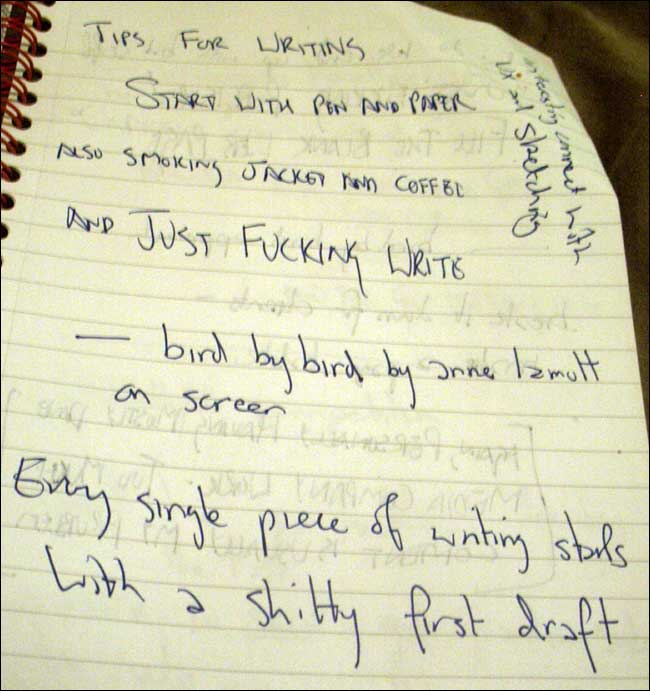 TIPS FOR WRITING
START WITH PEN AND PAPER
ALSO SMOKING JACKET AND COFFEE
AND JUST FUCKING WRITE
— bird by bird by anne lamott
on screen
Every single piece of writing starts
with a shitty first draft
interesting connect with
UX and sketching